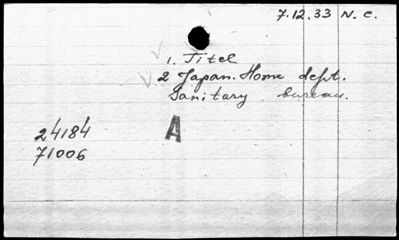 7.12.33 N. C.
1. Titel
2 Japan. Home dept.
Sanitary bureau.
24184
71006
A